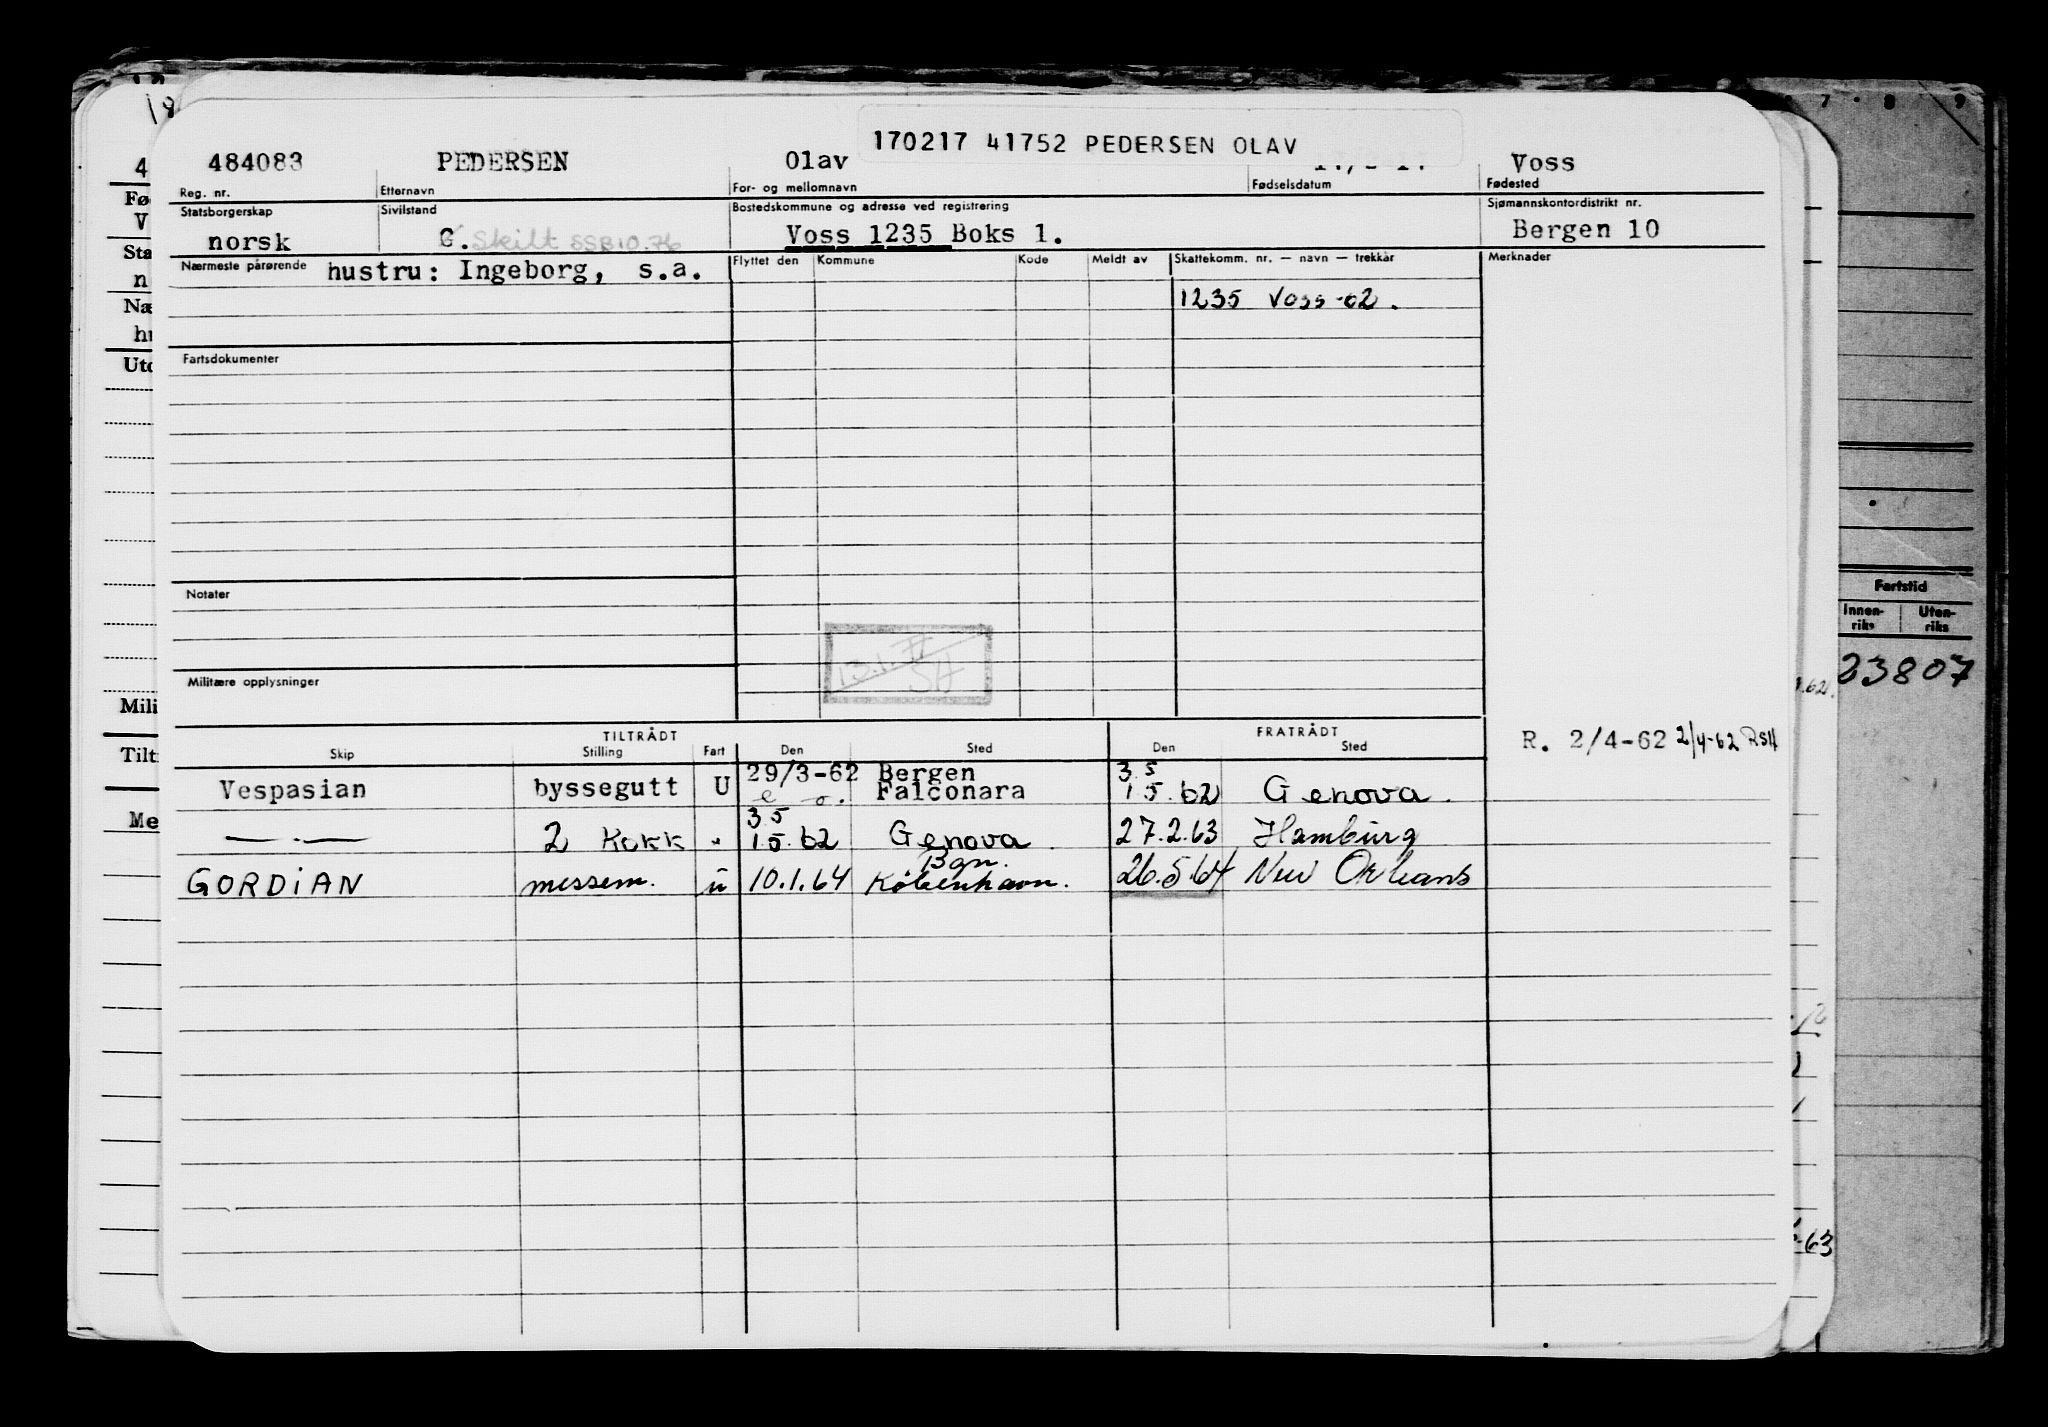 170217 41752 PEDERSEN OLAV
484083 PEDERSEN Olav Voss
Reg. nr. Etternavn For- og mellomnavn Fødselsdatum Fødested
Statsborgerskap Sivilstand Bostedskommune og adresse ved registrering Sjømannskontordistrikt nr.
norsk G. Skilt SSB 10.76 Voss 1235 Boks 1. Bergen 10
Nærmeste pårørende hustru: Ingeborg, s.a. Flyttet den Kommune Kode Meldt av Skattekomm. nr. — navn — trekkår Merknader
1235 Voss-62.
Fartsdokumenter
Notater
13.1.
SH
Militære opplysninger
TILTRÅDT FRATRÅDT
Skip Stilling Fart Den Sted Den Sted
R. 2/4-62 2/4-62 RSH
29/3-62 Bergen 3.5
Vespasian byssegutt U Falconara 15.62 Genova.
3.5
— . — 2 Kokk " 15.62 Genova. 27.2.63 Hamburg
Bgn.
GORDIAN messem. u 10.1.64 København. 26.5.64 New Orleans
Fartstid
Innen-
riks
Uten-
riks
23807
Mili
Tilt
Me
7 8 9
-63